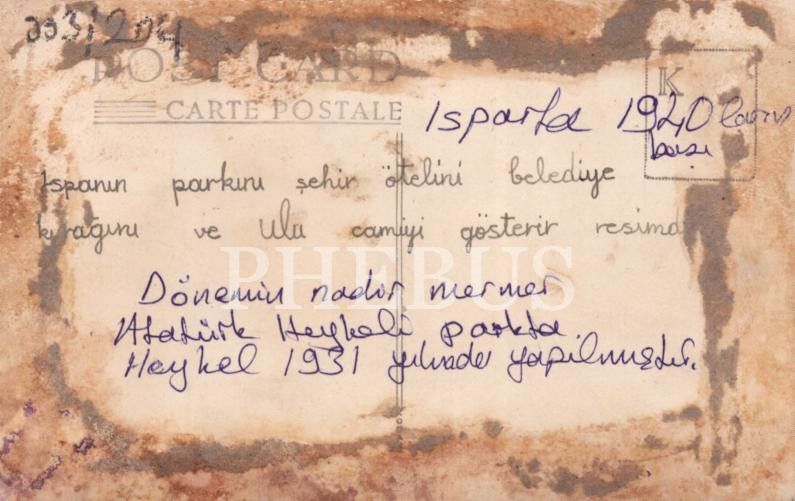 353/204
POST CARD
CARTE POSTALE
K
Isparta 1940 ların
başı
Ispanın parkını şehir otelini belediye
kırağını ve Ulu camiyi gösterir resimdi
PHEBUS
Dönemin nadir mermer
Atatürk Heykeli parkta.
Heykel 1931 yılında yapılmıştır.